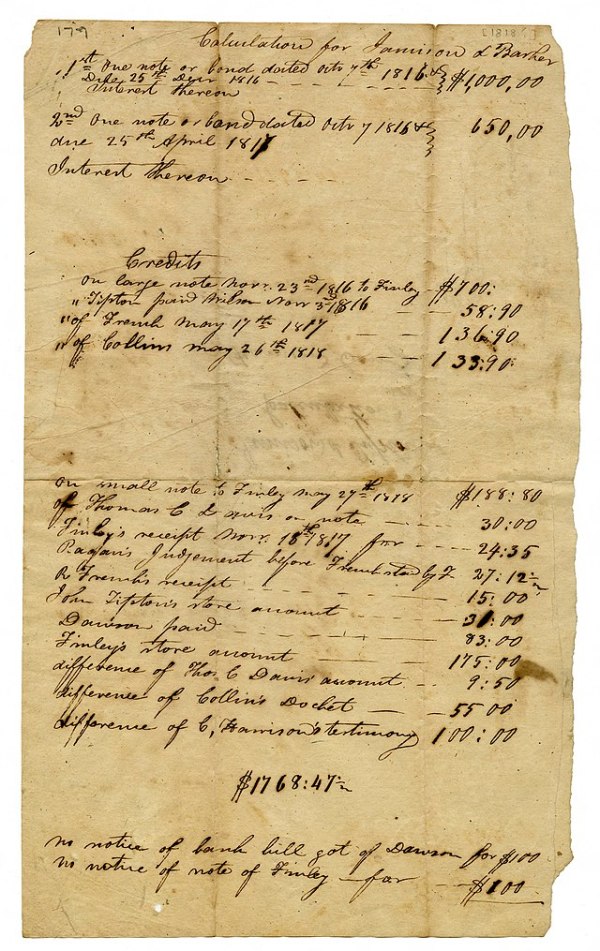 179
[1818?]
Calculation for Jamison & Barker
1st One note or bond dated Octr 7th 1816 &
Due 25th Decr 1816 — $1,000,00
Interest thereon
2nd One note or bond dated Octr 7 1816 & 650,00
due 25th April 1817
Interest thereon - - - -
Credits
On large note Novr. 23nd 1816 to Finley - $700:
" Tipton paid Wilson Novr 3rd 1816 — 58:90
" of French May 17th 1817 — 136:90
" of Collins May 26th 1818 — 133:90:
On small note to Finley May 27th 1818 $188:80
of Thomas C Davis on note — 30:00
Finley's receipt Novr. 18th 1817 for — 24:35
Ragan's Judgement before French stood by F. 27:12
R French's receipt — 15:00
John Tipton's store account — 31:00
Dawson paid — 83:00
Finley's store account — 175:00
difference of Thos. C Davis' account - - 9:50
difference of Collin's Docket — 55 00
difference of C, Harrison's testimony 100:00
$1768:47
no notice of bank bill got of Dawson for $100
no notice of note of Finley — for - - $100